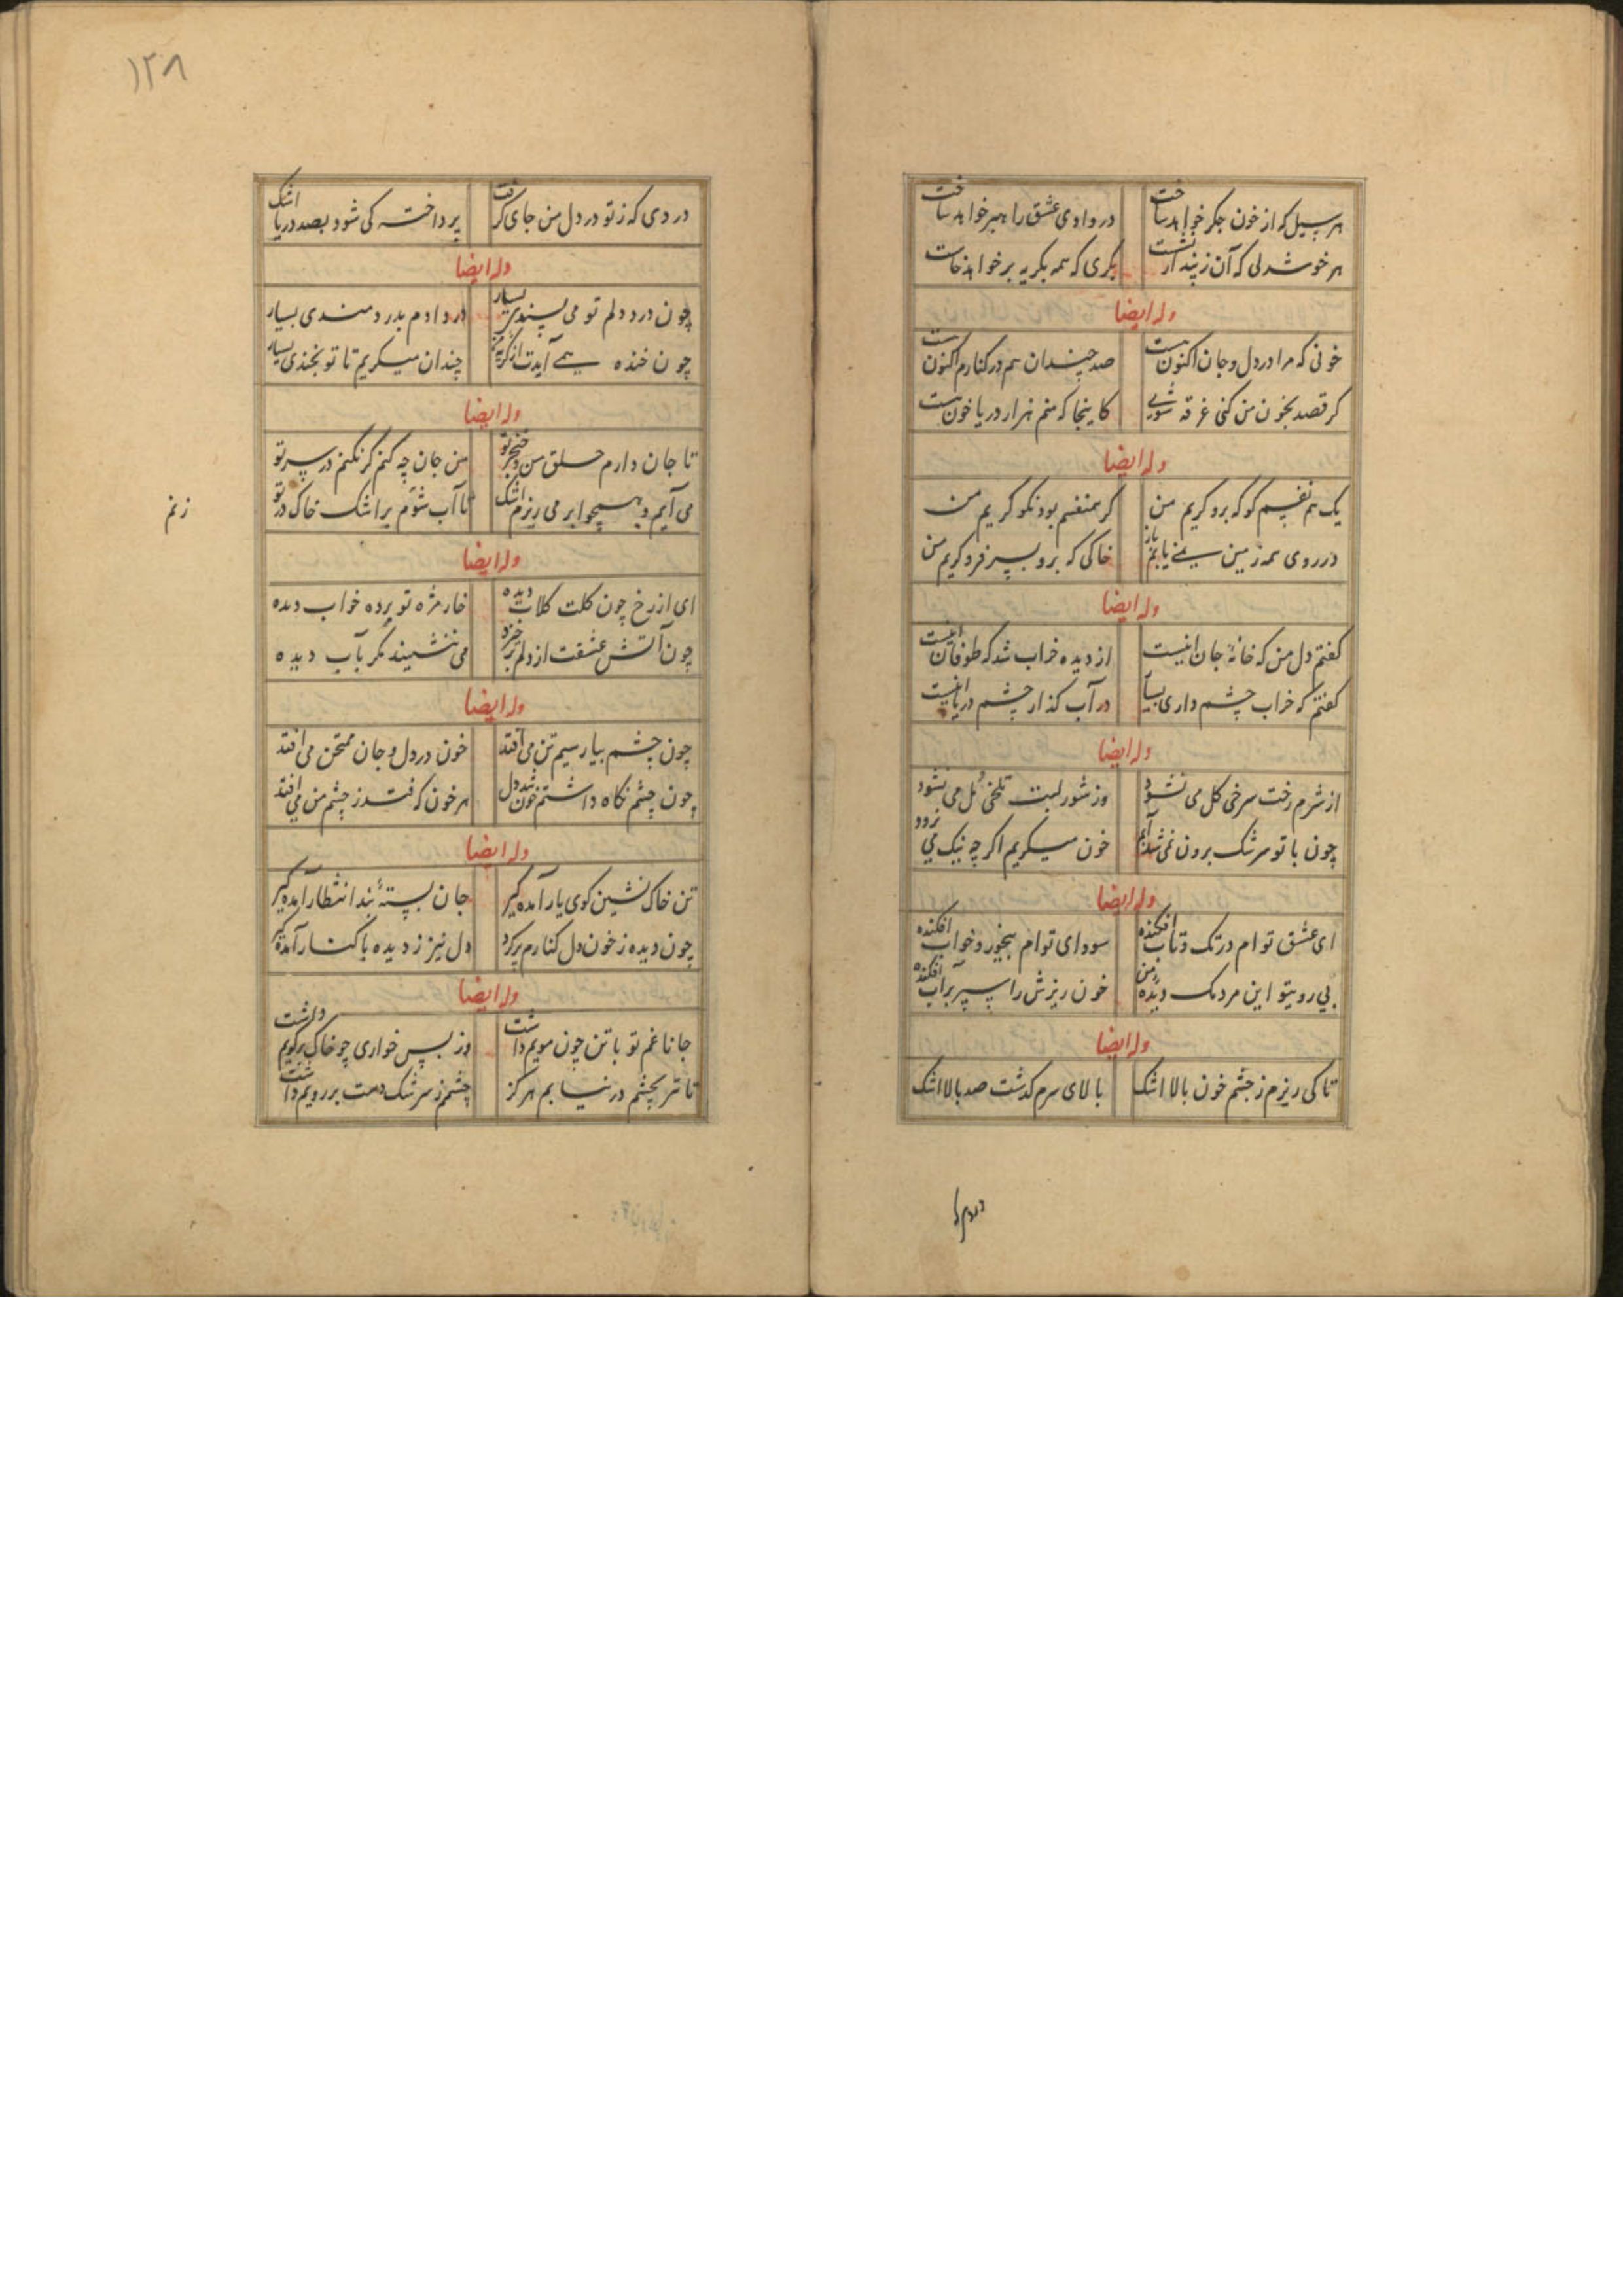 هر سیل که از خون جکر خواهد ساخت در وادی عشق راهبر خواهد ساخت
هر خوشدلی که آن ز پنداشت بکری که همه بکریه بر خواهد خاست
وله ایضا
خونی که مرا در دل و جان اکنون هست صد چندان هم در کنارم اکنون هست
کر قصد بخون من کنی غرقه شوی کاینجا که منم هزار دریا خون هست
وله ایضا
یک هم نفسم کو که برو کریم من کر همنفسم بود نکو کریم من
در روی همه زمین نمی یابم باز خاکی که برو بسر فرو کریم من
وله ایضا
کفتم دل من که خانهٔ جان اینست از دیده خراب شد که طوفان اینست
کفتم که خراب چشم داری بسیار در آب کذار چشم دریا اینست
وله ایضا
از شرم رخت سرخی کل می نشود وز شور لبت تلخی مل می نشود
چون با تو سرشک برون نمی شد خون میکریم اکر چه نیک می نرود
وله ایضا
ای عشق توام در تک و تاب افکنده سودای توام بیخور و خواب افکنده
بی روی تو این مردمک دیدهٔ من خون ریزش را سپر بر آب افکنده
وله ایضا
تا کی ریزم ز چشم خون بالا اشک بالای سرم کذشت صد بالا اشک
دردی که
١٢٨
دردی که ز تو در دل من جای کرفت پرداخته کی شود بصد دریا اشک
وله ایضا
چون درد دلم تو می پسندی بسیار در دادم بدردمندی بسیار
چون خنده همی آیدت از کریهٔ من چندان میکریم تا تو بخندی بسیار
وله ایضا
تا جان دارم حلق من و خنجر تو من جان چه کنم کر نکنم در سر تو
می آیم و همچو ابر می ریزم اشک تا آب شوم بر اشک خاک در تو
زنم
وله ایضا
ای از رخ چون کلت کلاب دیده خار مژه تو برده خواب دیده
چون آتش عشقت از دلم برخیزد می ننشیند مکر بآب دیده
وله ایضا
چون چشم بیار سیم تن می افتد خون در دل و جان ممتحن می افتد
چون چشم نکاه داشتم خون شد دل هر خون که فتد ز چشم من می افتد
وله ایضا
تن خاک نشین کوی یار آمده کیر جان بستهٔ بند انتظار آمده کیر
چون دیده ز خون دل کنارم پر کرد دل نیز ز دیده با کنار آمده کیر
وله ایضا
جانا غم تو با تن چون مویم داشت وز بس خواری چو خاک بر کویم داشت
تا تر بچشم در نیابم هرکز چشمم ز سرشک دست بر رویم داشت